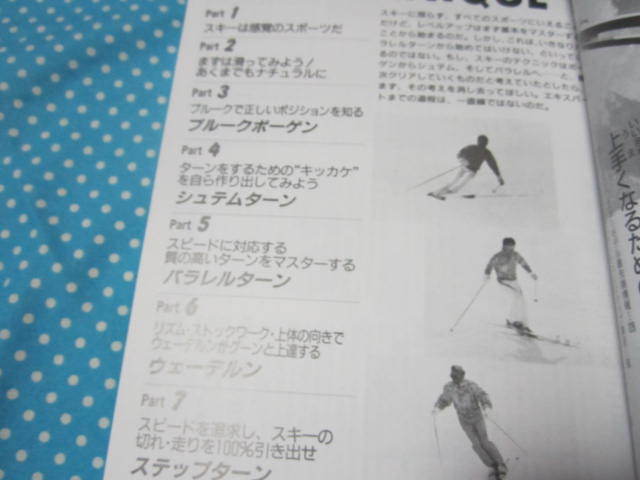 Part 1
スキーは感覚のスポーツだ
Part 2
まずは滑ってみよう!
あくまでもナチュラルに
Part 3
プルークで正しいポジションを知る
プルークボーゲン
Part 4
ターンをするための"キッカケ"
を自ら作り出してみよう
シュテムターン
Part 5
スピードに対応する
質の高いターンをマスターする
パラレルターン
Part 6
リズム・ストックワーク・上体の向きで
ウェーデルンがグーンと上達する
ウェーデルン
Part 7
スピードを追求し、スキーの
切れ・走りを100%引き出せ
ステップターン
スキーに限らず、すべてのスポーツにいえるこ
だけど、レベルアップはまず基本をマスターす
ことから始まるのだ。しかし、これは、いきなり
ラレルターンから始めてはいけない、といって
るのではない。もし、スキーのテクニックはボ
ゲンからシュテム、そしてパラレルへ……と、
次クリアしていくものだと考えていたとしたら
まず、その考えを消し去ってほしい。エキスパ
トまでの過程は、一直線ではないのだ。
上手くなるため